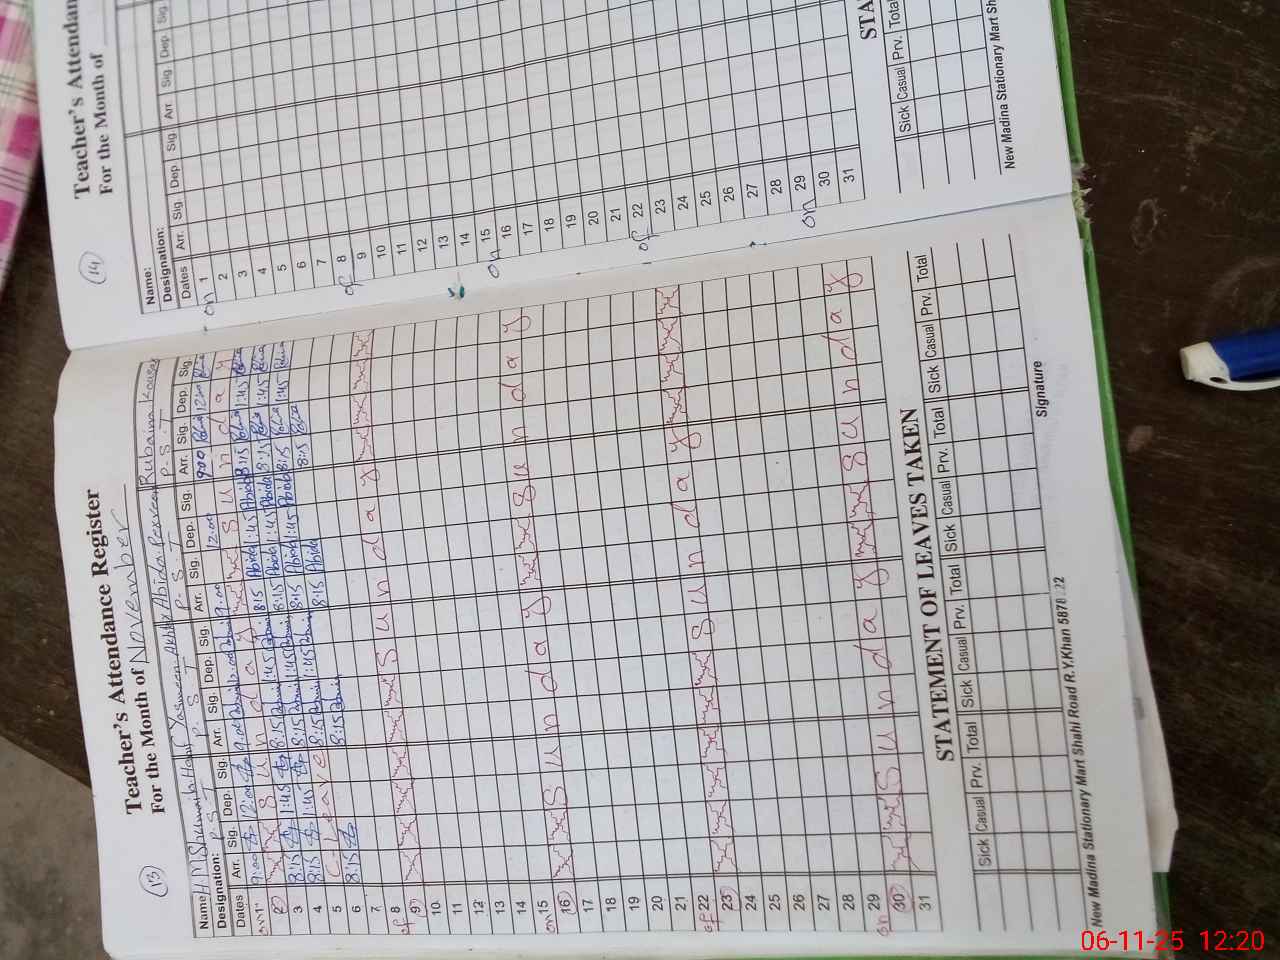 13
Teacher's Attendance Register
For the Month of November
Name H.M Shumaila Hanif Yasmeen Akhtar Abida Perveen Rubaina Kausar
Designation: P S T P. S T P. S T P. S. T
Dates Arr. Sig. Dep. Sig. Arr. Sig. Dep. Sig. Arr. Sig. Dep. Sig. Arr. Sig. Dep. Sig.
on 1 9:00 12:00 9:00 12:00 9:00 12:00 9:00 12:00
2 Sunday Sunday
3 8:15 1:45 8:15 1:45 8:15 Abida 1:45 Abida 8:15 1:45
4 8:15 1:45 8:15 1:45 8:15 Abida 1:45 Abida 8:15 1:45
5 C-Leave 8:15 1:45 8:15 Abida 1:45 Abida 8:15 1:45
6 8:15 8:15 8:15 Abida 8:15
7
of 8
9 Sunday
10
11
12
13
14
on 15
16 Sunday Sunday
17
18
19
20
21
of 22
23 Sunday
24
25
26
27
28
on 29
30 Sunday Sunday
31
STATEMENT OF LEAVES TAKEN
Sick Casual Prv. Total Sick Casual Prv. Total Sick Casual Prv. Total Sick Casual Prv. Total
Signature
New Madina Stationary Mart Shahi Road R.Y.Khan 5878122
14
Teacher's Attendan
For the Month of
Name:
Designation:
Dates Arr. Sig. Dep Sig. Arr. Sig. Dep. Sig.
on 1
2
3
4
5
6
7
of 8
9
10
11
12
13
14
on 15
16
17
18
19
20
21
of 22
23
24
25
26
27
28
on 29
30
31
STA
Sick Casual Prv. Total
New Madina Stationary Mart Sh
06-11-25 12:20